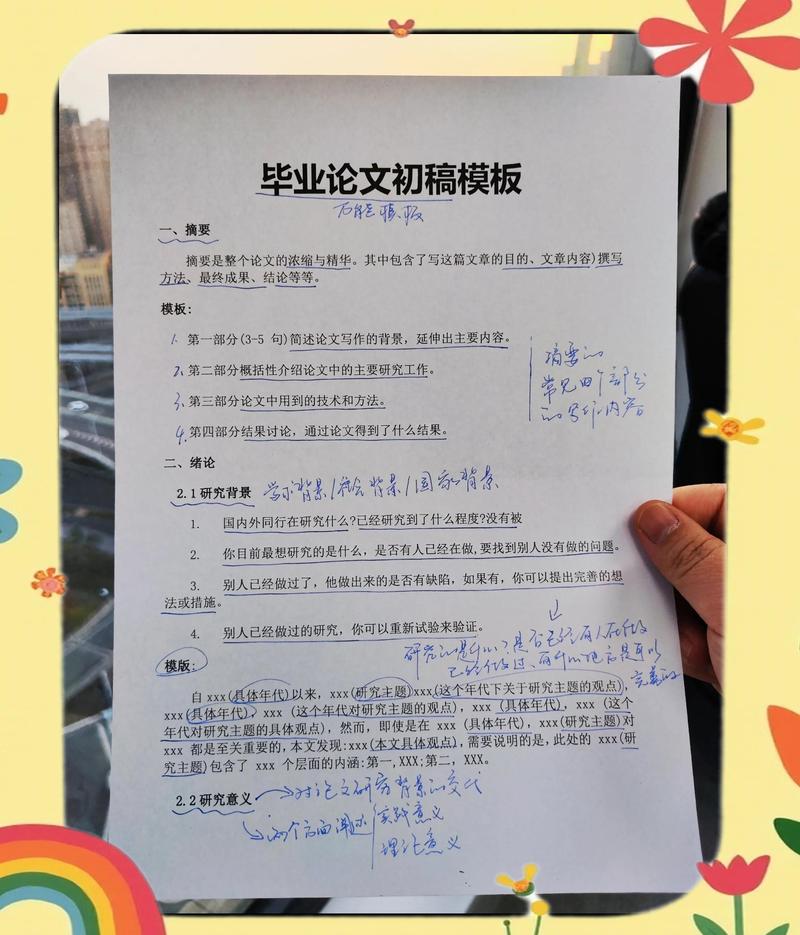 毕业论文初稿模板
万能模板
一、摘要
摘要是整个论文的浓缩与精华。其中包含了写这篇文章的目的、文章内容)撰写
方法、最终成果、结论等等。
模板:
1. 第一部分(3-5 句)简述论文写作的背景，延伸出主要内容。
2. 第二部分概括性介绍论文中的主要研究工作。
3. 第三部分论文中用到的技术和方法。
4. 第四部分结果讨论，通过论文得到了什么结果。
摘要的
常见四个部分
的写作内容
二、绪论
2.1 研究背景 学术背景/社会背景/国家背景
1. 国内外同行在研究什么?已经研究到了什么程度?没有被
2. 你目前最想研究的是什么，是否有人已经在做,要找到别人没有做的问题。
3. 别人已经做过了，他做出来的是否有缺陷，如果有，你可以提出完善的想
法或措施。
4. 别人已经做过的研究，你可以重新试验来验证。
研究的是什么?是否已经有人在做
已经做过，有什么地方是可以
完善的
模版:
自 xxx(具体年代)以来，xxx(研究主题)xxx(这个年代下关于研究主题的观点)，
xxx(具体年代)，xxx (这个年代对研究主题的观点)，xxx (具体年代)，xxx (这个
年代对研究主题的具体观点)，然而，即使是在 xxx (具体年代)，xxx(研究主题)对
xxx 都是至关重要的,本文发现:xxx(本文具体观点),需要说明的是，此处的 xxx(研
究主题)包含了 xxx 个层面的内涵:第一,XXX;第二，XXX。
2.2 研究意义 对论文研究背景的交代
两个方面阐述 实践意义
理论意义